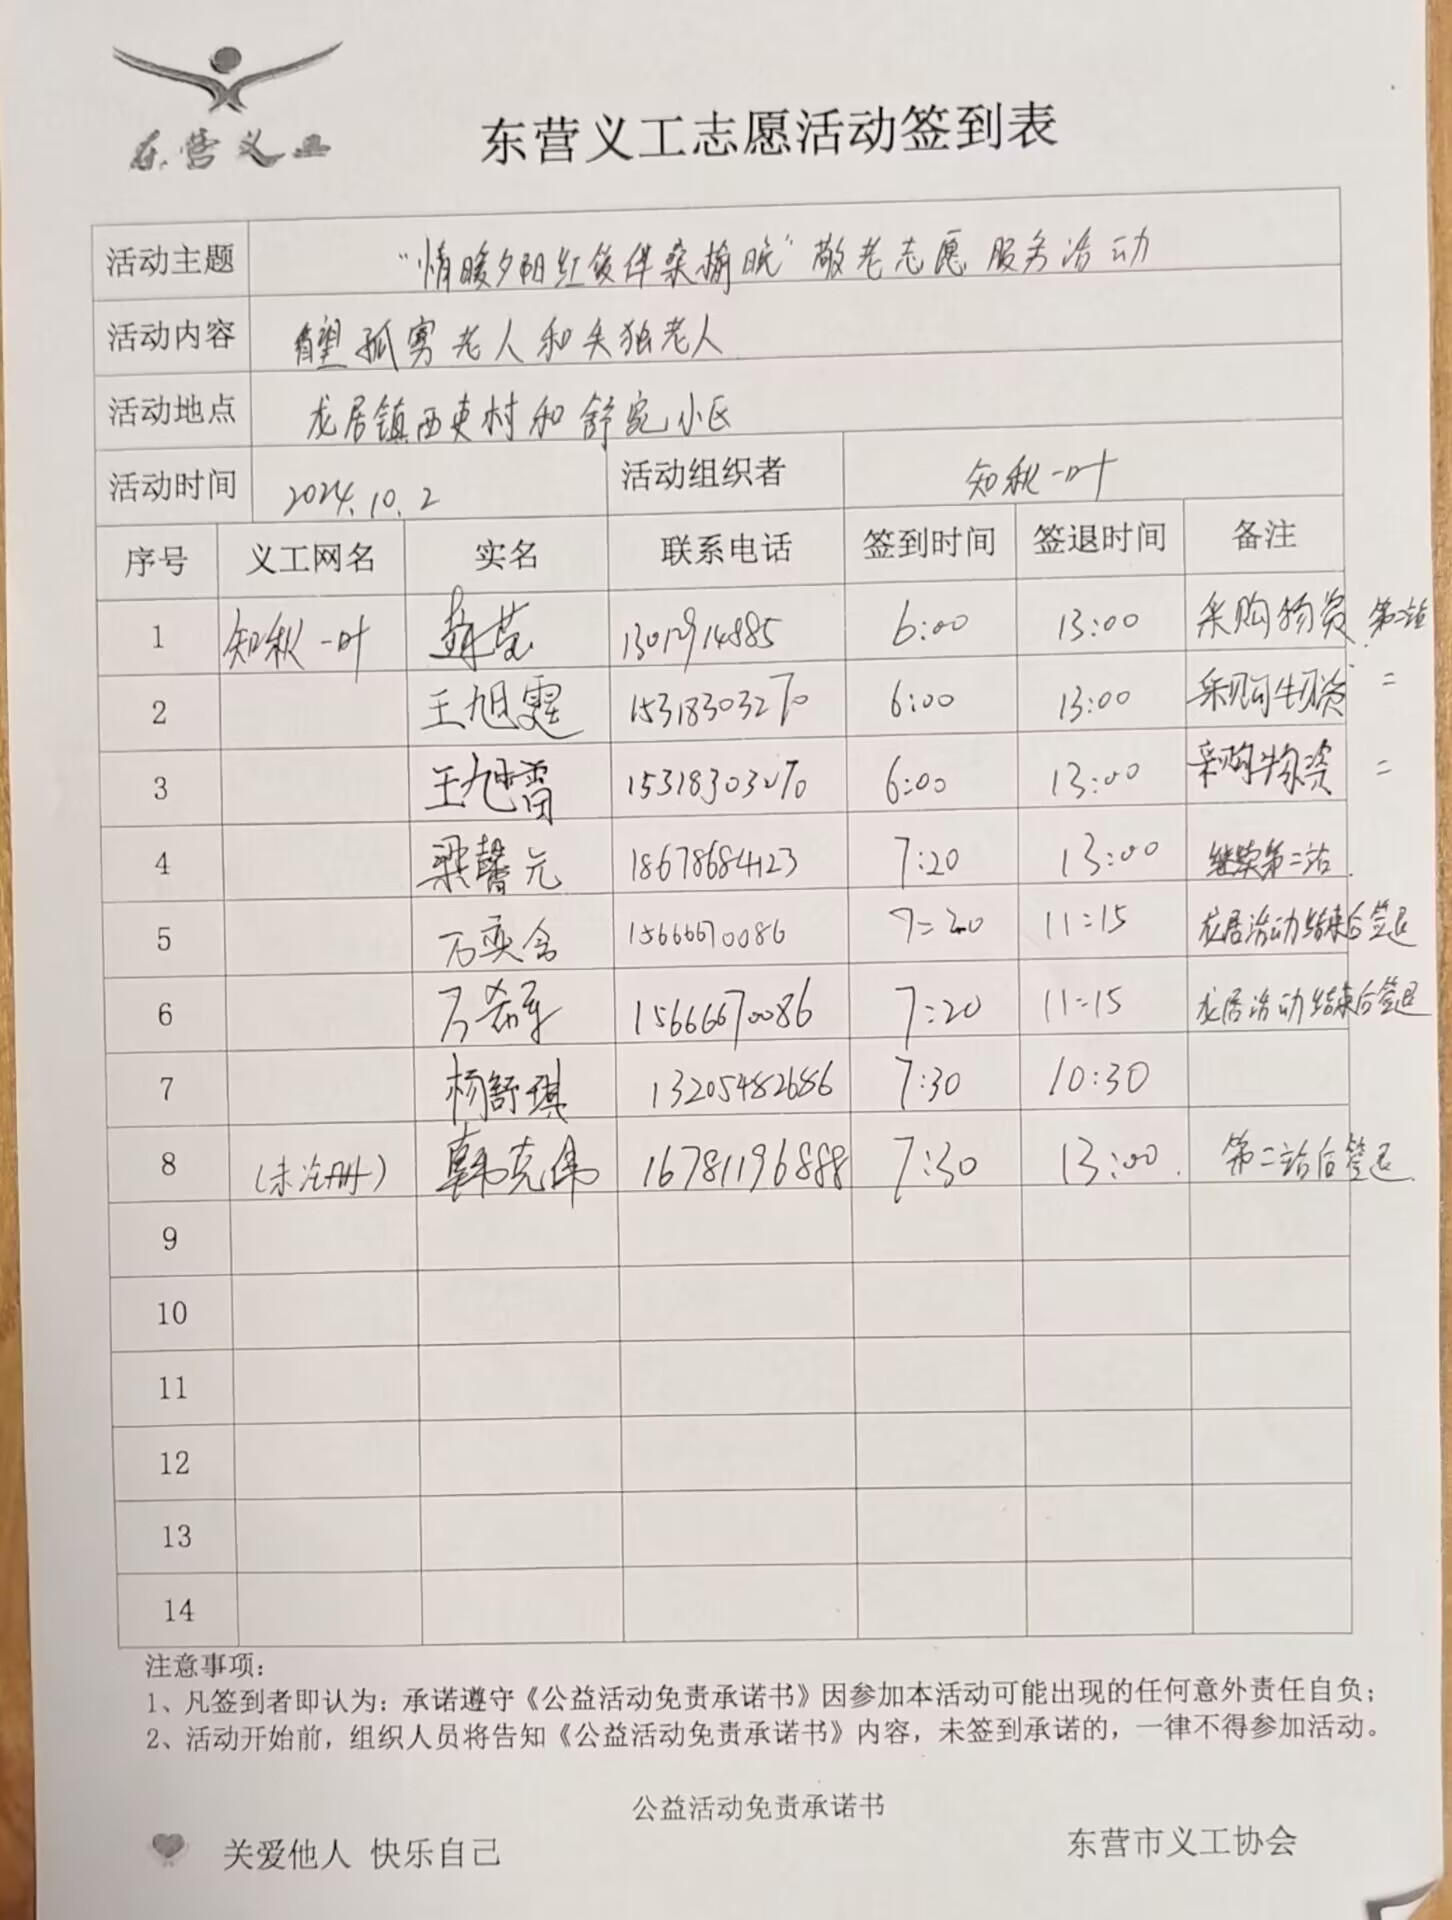 东营义工
东营义工志愿活动签到表
活动主题 "情暖夕阳红饭伴桑榆晚"敬老志愿服务活动
活动内容 看望孤寡老人和失独老人
活动地点 龙居镇西 村和舒 小区
活动时间 2024.10.2 活动组织者 知秋一叶
序号 义工网名 实名 联系电话 签到时间 签退时间 备注
1 知秋一叶 13012914885 6:00 13:00 采购物资 第二站
2 王旭霆 15318303270 6:00 13:00 采购物资 =
3 王旭雷 15318303270 6:00 13:00 采购物资 =
4 梁馨元 18678684123 7:20 13:00 继续第二站.
5 石奕含 15666670086 7:20 11:15 龙居活动结束后签退
6 15666670086 7:20 11:15 龙居活动结束后签退
7 杨舒琪 13205482686 7:30 10:30
8 (未注册) 韩克伟 16781196888 7:30 13:00. 第二站后签退.
9
10
11
12
13
14
注意事项:
1、凡签到者即认为:承诺遵守《公益活动免责承诺书》因参加本活动可能出现的任何意外责任自负;
2、活动开始前,组织人员将告知《公益活动免责承诺书》内容,未签到承诺的,一律不得参加活动。
公益活动免责承诺书
关爱他人 快乐自己 东营市义工协会